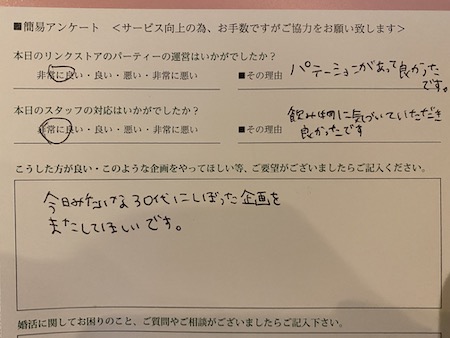 ■簡易アンケート ＜サービス向上の為、お手数ですがご協力をお願い致します＞
本日のリンクストアのパーティーの運営はいかがでしたか？
非常に良い・良い・悪い・非常に悪い ■その理由 パテーションがあって良かったです。
本日のスタッフの対応はいかがでしたか？
非常に良い・良い・悪い・非常に悪い ■その理由 飲み物に気づいていただき良かったです
こうした方が良い・このような企画をやってほしい等、ご要望がございましたらご記入ください。
今日みたいな30代にしぼった企画を
またしてほしいです。
婚活に関してお困りのこと、ご質問やご相談がございましたらご記入下さい。